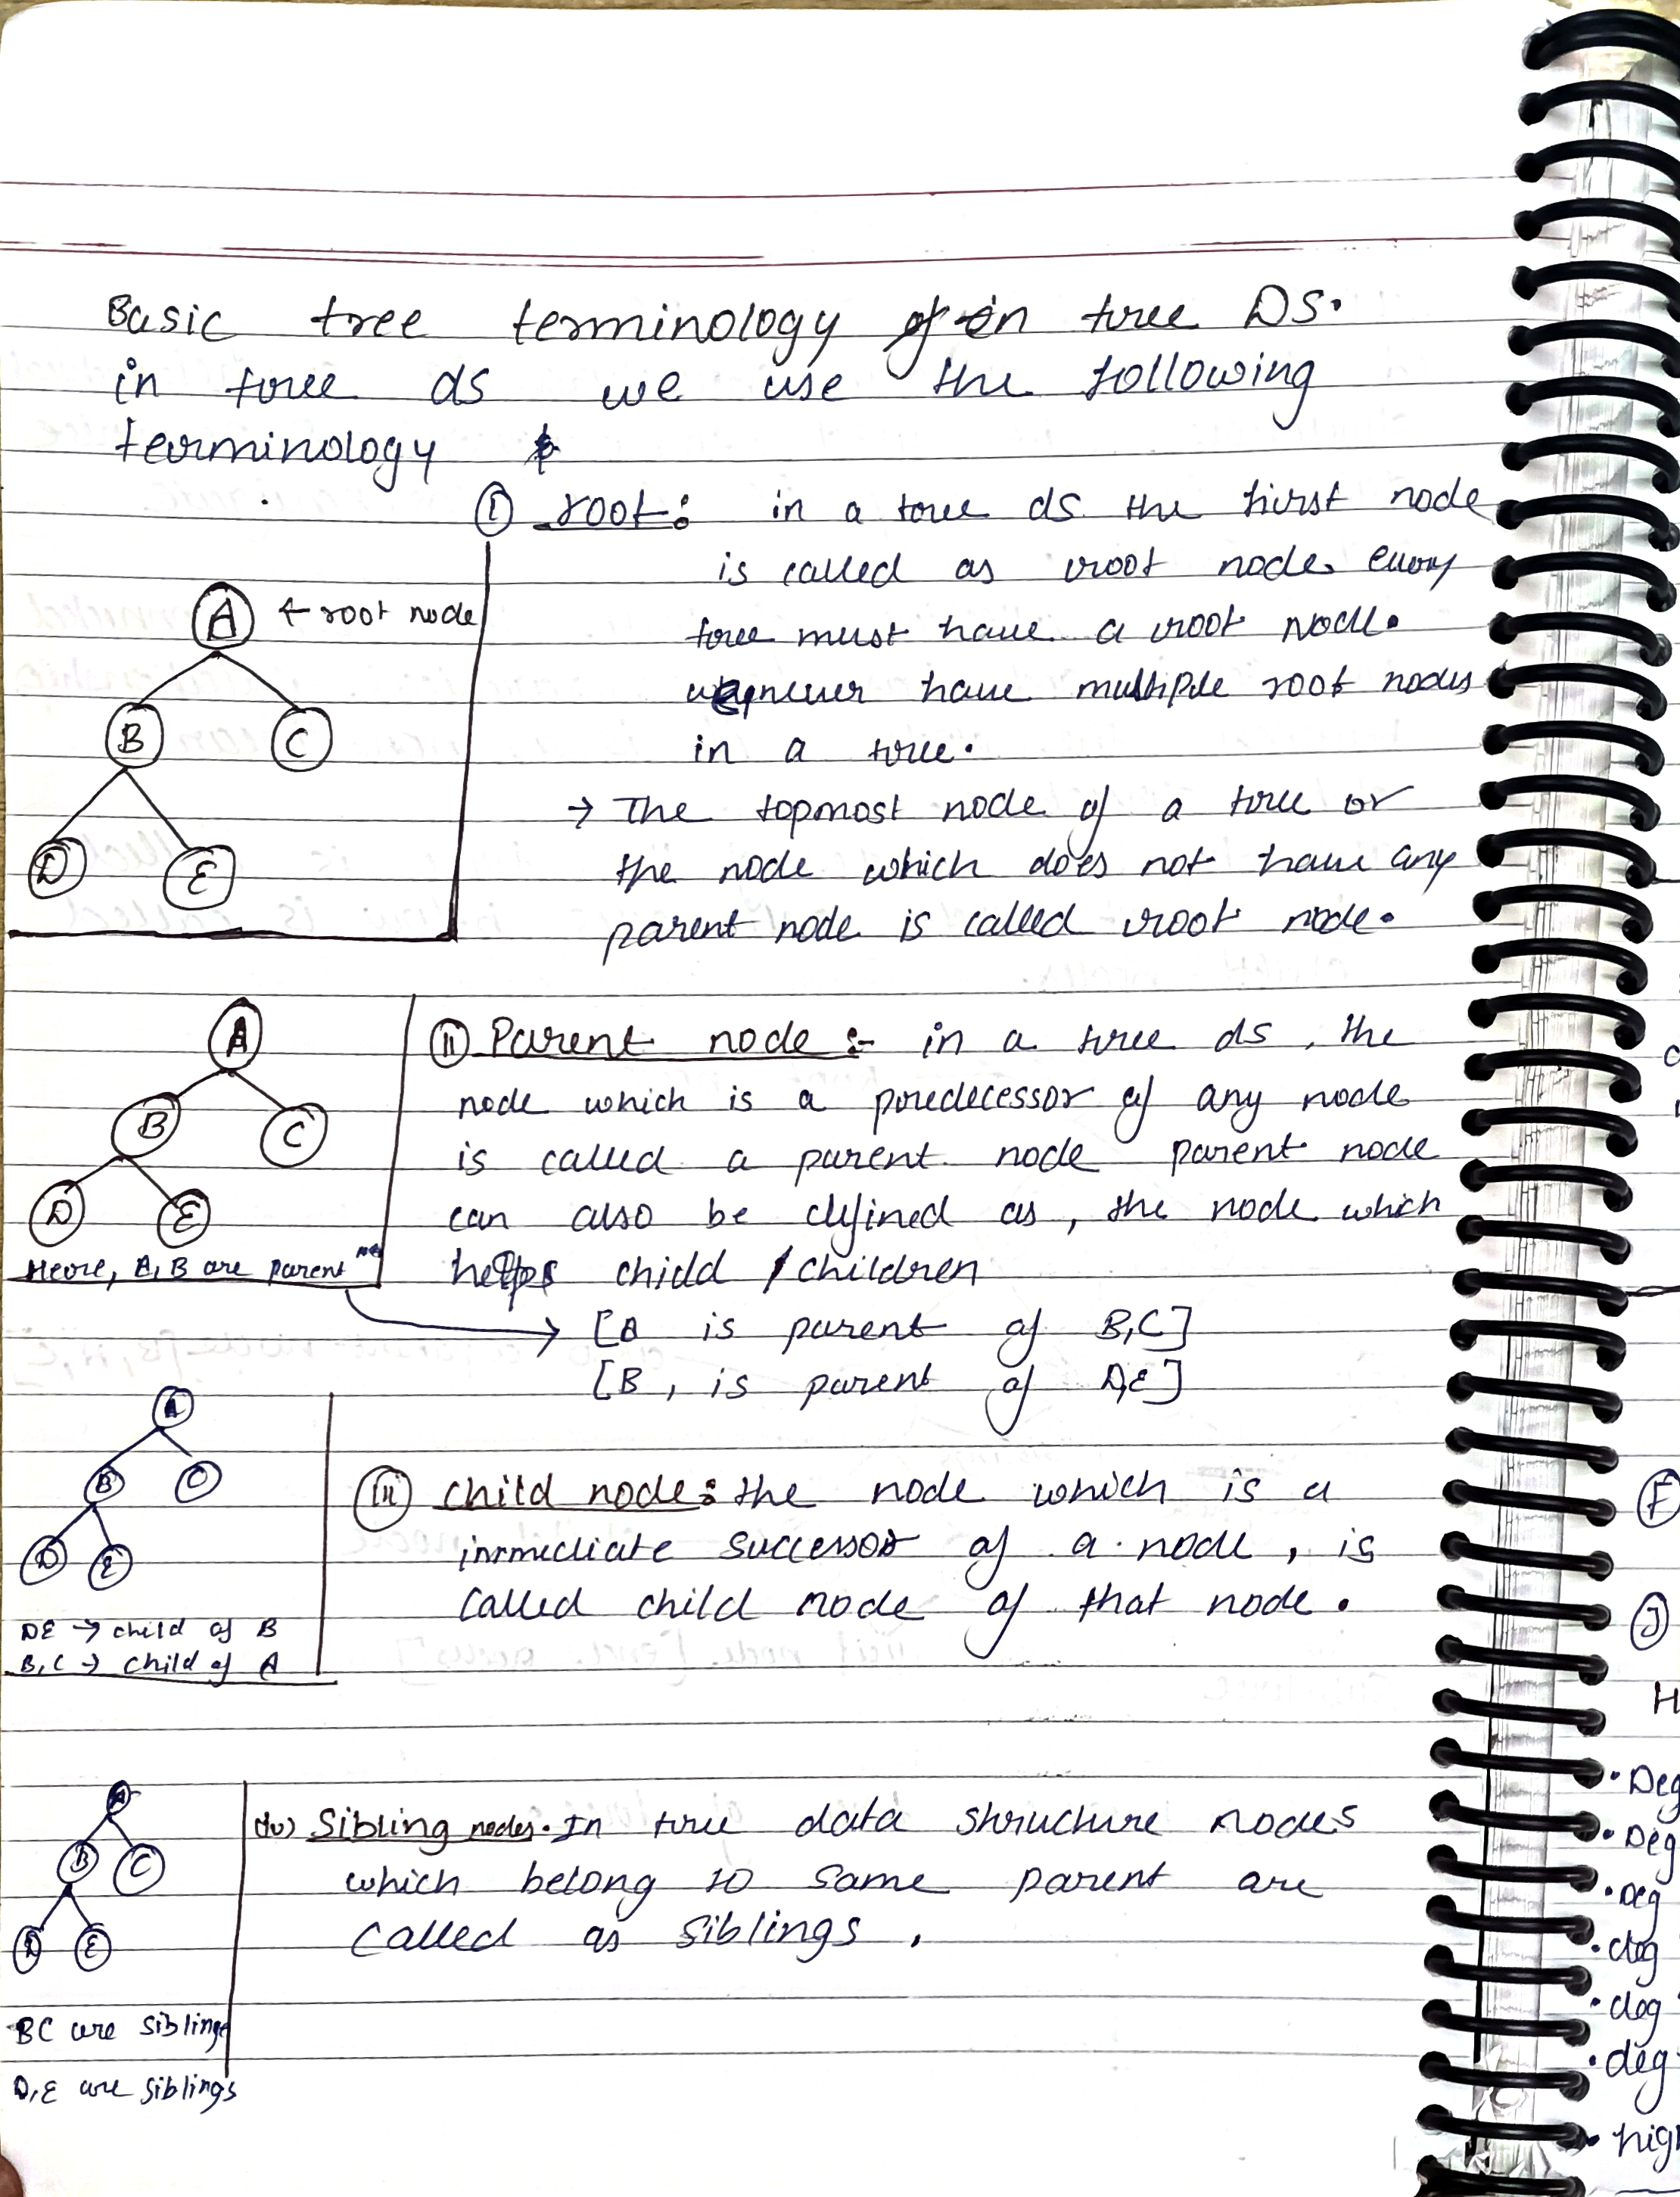 Basic tree terminology in tree DS.
in tree ds we use the following
terminology
(i) root: in a tree ds the first node
is called as root node. every
tree must have a root node.
have multiple root nodes
in a tree.
→ The topmost node of a tree or
the node which does not have any
parent node is called root node.
A ← root node
B C
D E
(ii) Parent node :- in a tree ds, the
node which is a predecessor of any node
is called a parent node parent node
can also be defined as, the node which
child / children
[A is parent of B,C]
[B, is parent of D,E]
A
B C
D E
Here, A, B are parent
(iii) child node: the node which is a
immediate successor of a node, is
called child node of that node.
A
B C
D E
DE → child of B
B,C → child of A
(iv) Sibling nodes. In tree data structure nodes
which belong to same parent are
called as siblings.
A
B C
D E
BC are siblings
D,E are siblings
F
J
H
• Deg
• Deg
• Deg
• deg
• deg
• deg
• hig